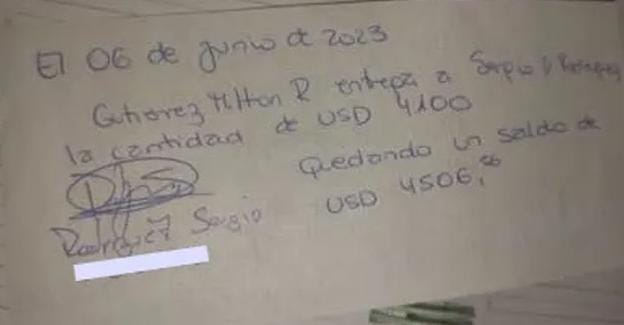 El 06 de junio de 2023
Gutierrez Milton R entrega a Sergio
la cantidad de USD 4100
Quedando un saldo de
USD 4506,00
Rodriguez Sergio